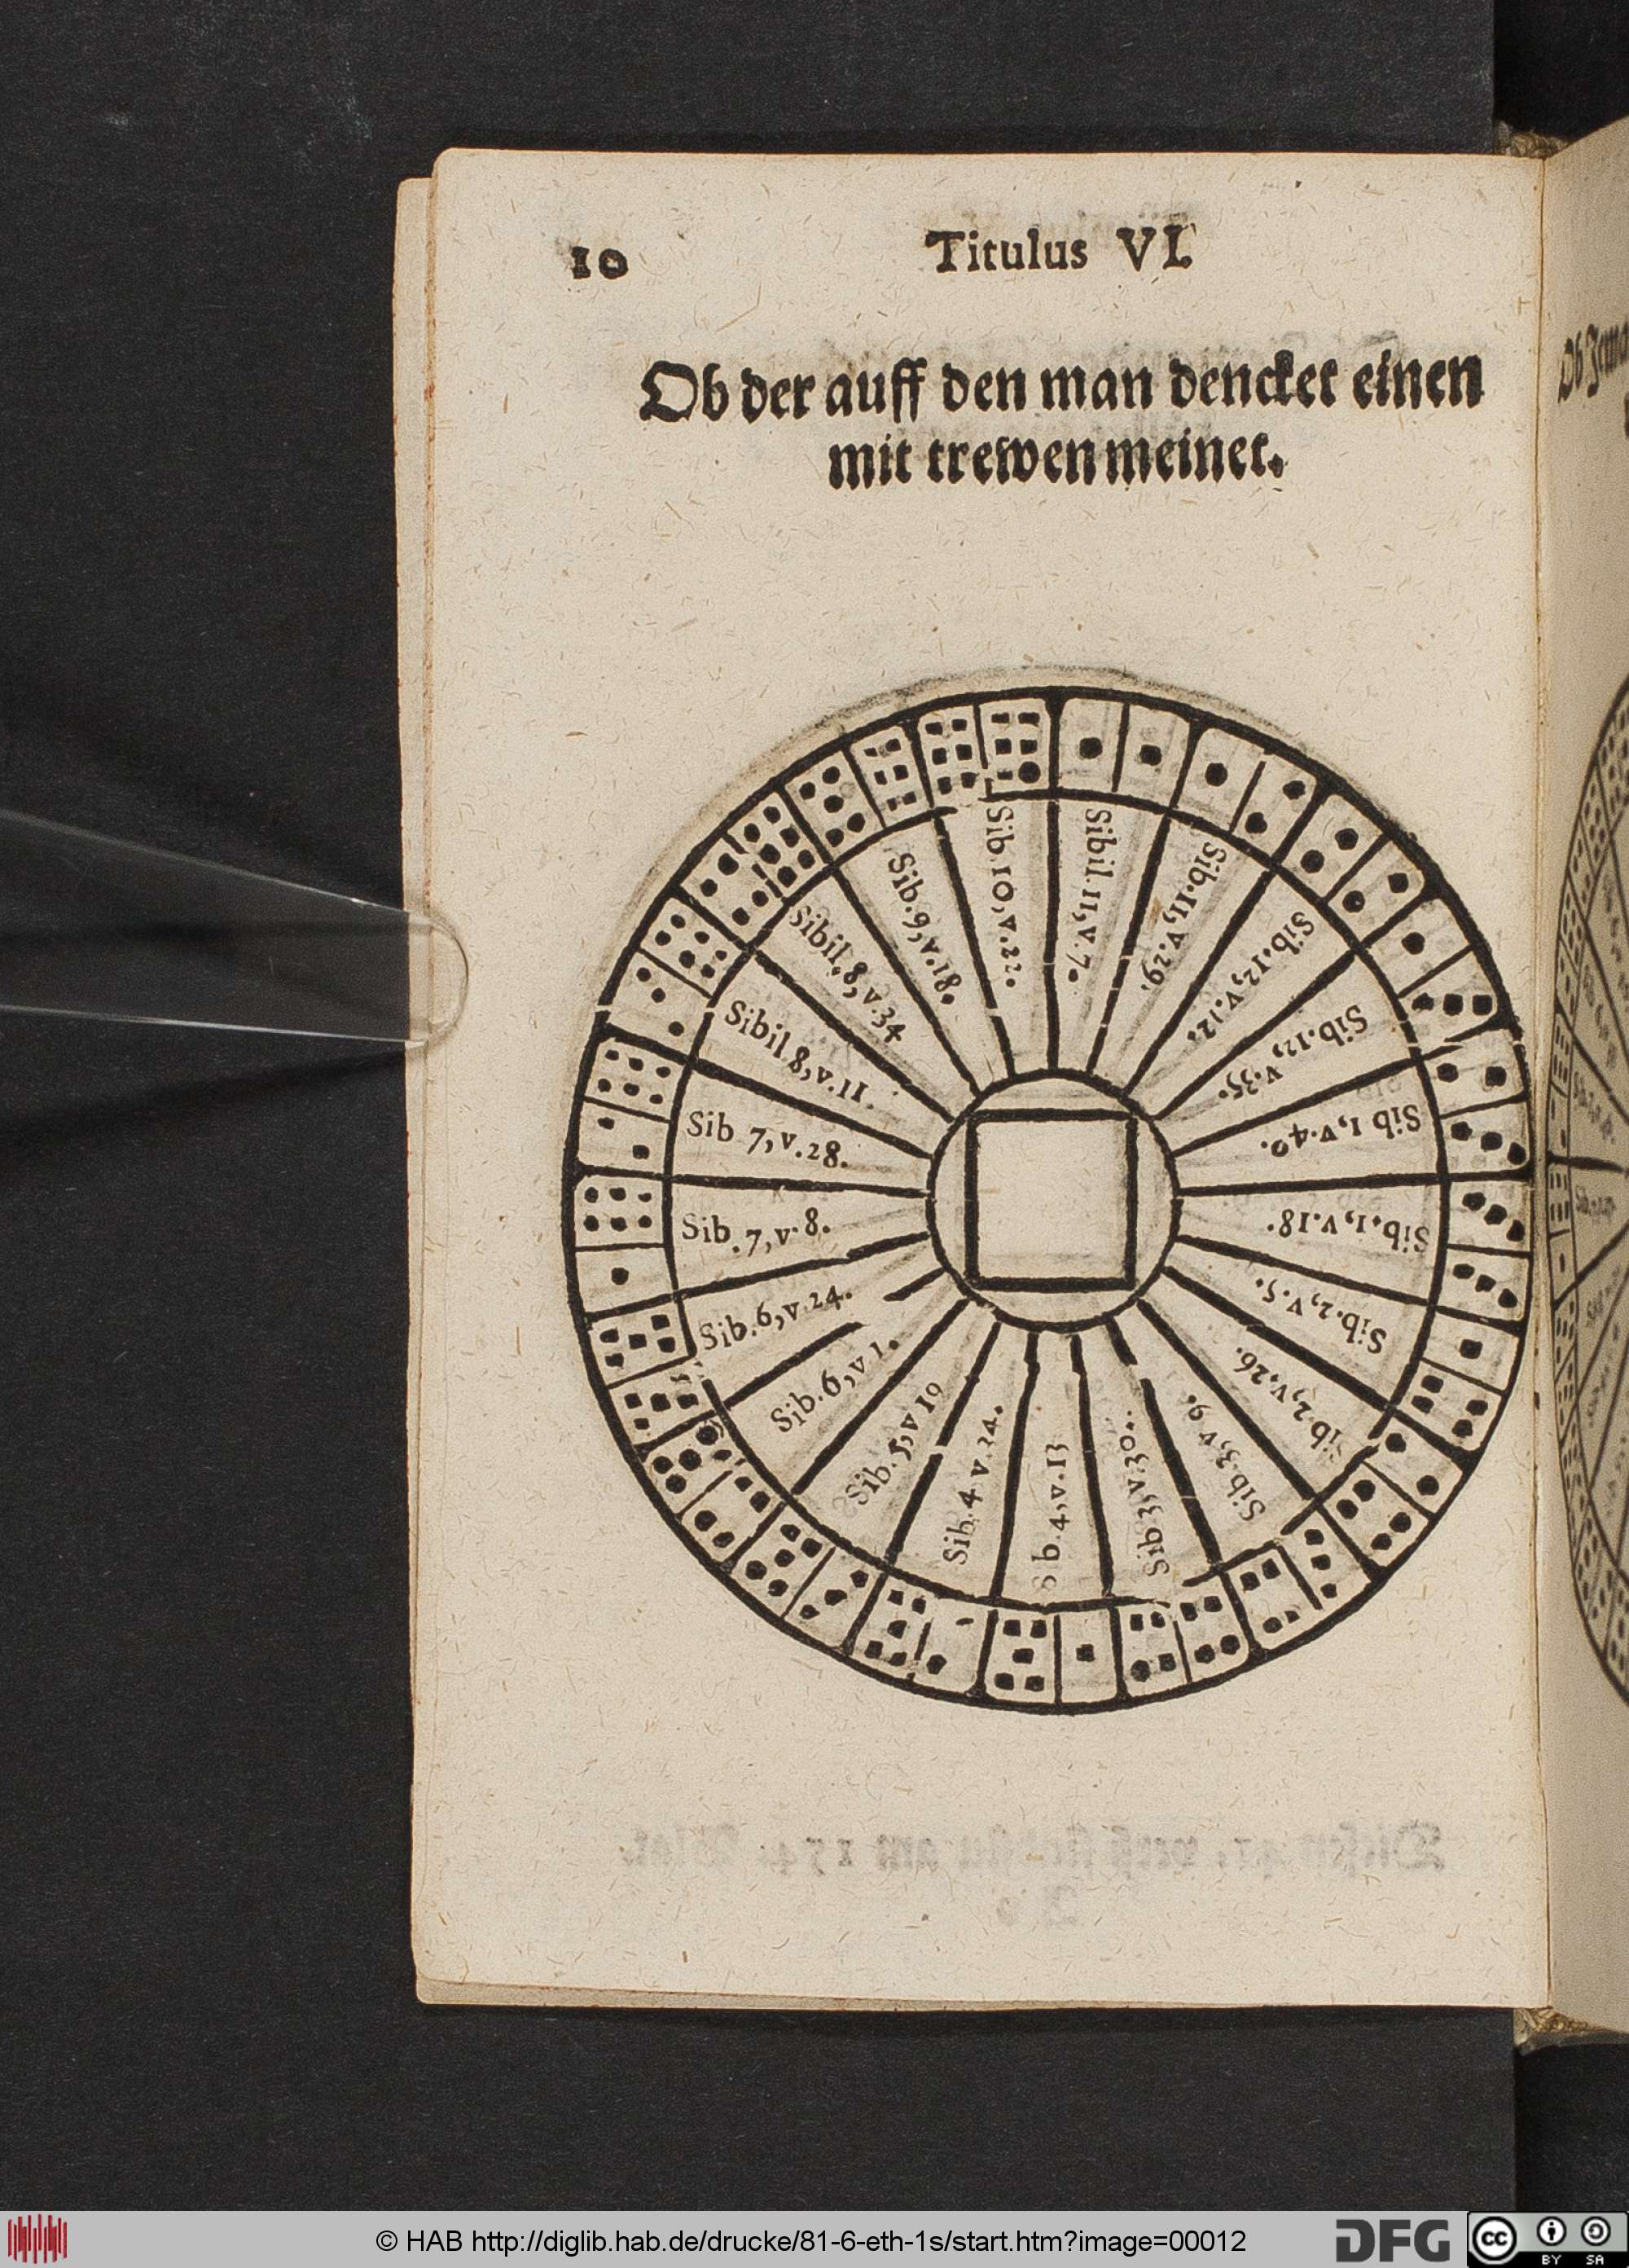 10
Titulus VI.
Ob der auff den man dencket einen
mit trewen meinet.
Sibil. 11, v. 7.
Sib. 11, v. 29.
Sib. 12, v. 12.
Sib. 12, v. 35.
Sib 1, v. 40.
Sib. 1, v. 18.
Sib. 2, v. 5.
Sib. 2, v. 26.
Sib. 3, v 9.
Sib 3, v. 30..
Sib. 4, v. 13
Sib. 4 v. 34.
Sib. 5, v 19
Sib. 6, v 1.
Sib. 6, v. 24.
Sib. 7, v. 8.
Sib 7, v. 28.
Sibil 8, v. 11.
Sibil. 8, v. 34
Sib. 9, v. 18.
Sib. 10, v. 22.
Ob
© HAB http://diglib.hab.de/drucke/81-6-eth-1s/start.htm?image=00012
DFG
cc
BY SA